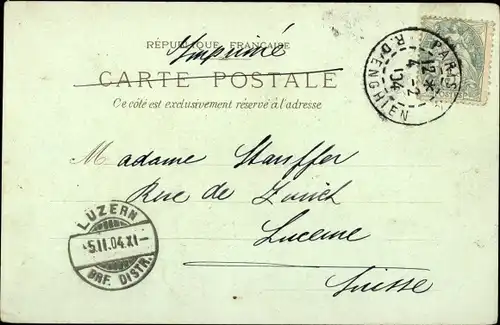 RÉPUBLIQUE FRANÇAISE
Imprimé
CARTE POSTALE
Ce côté est exclusivement réservé à l'adresse
PARIS
12
4 -2
04
R. D'ENGHIEN
Madame Stauffer
Rue de Zurich
Lucerne
Suisse
LUZERN
-5.II.04.XI-
BRF. DISTR.